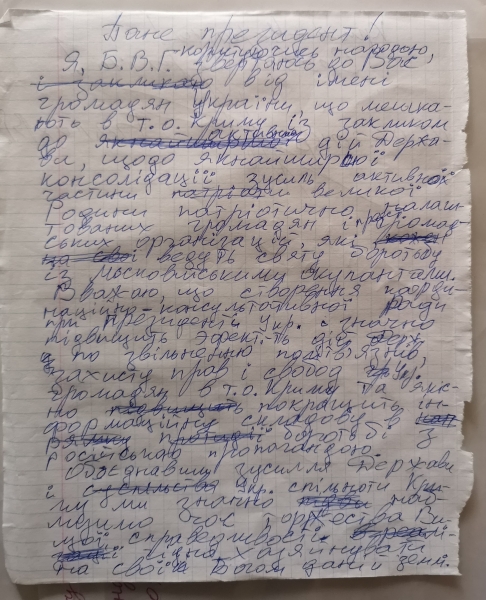 Пане президент!
користуючись нагодою,
Я, Б.В.Г. звертаюсь до Вас
і закликаю від імені
громадян України, що мешка-
ють в т.о. Криму із закликом
до якнайширшої активних дій Держа-
ви, щодо якнайширшої
консолідації зусиль активної
частини патріотів великої
Родини патріотично налаш-
тованих громадян і громад-
ських організацій, які
ведуть святу боротьбу
із московитськими окупантами.
Вважаю, що створення коорди-
наційно-консультативної ради
при Президенті Укр. значно
підвищить ефект-ть дій Держ
по звільненню політв'язнів,
захисту прав і свобод
громадян в т.о. Криму та якіс-
но підвищить покращить ін-
формаційну складову в
протидії боротьбі з
російською пропагандою.
Об'єднавши зусилля Держави
і суспільства спільноти Кри-
му ми значно наб-
лизимо час торжества Ви-
щої справедливості.
гідно хазяйнувати
на своїй Богом даній землі.